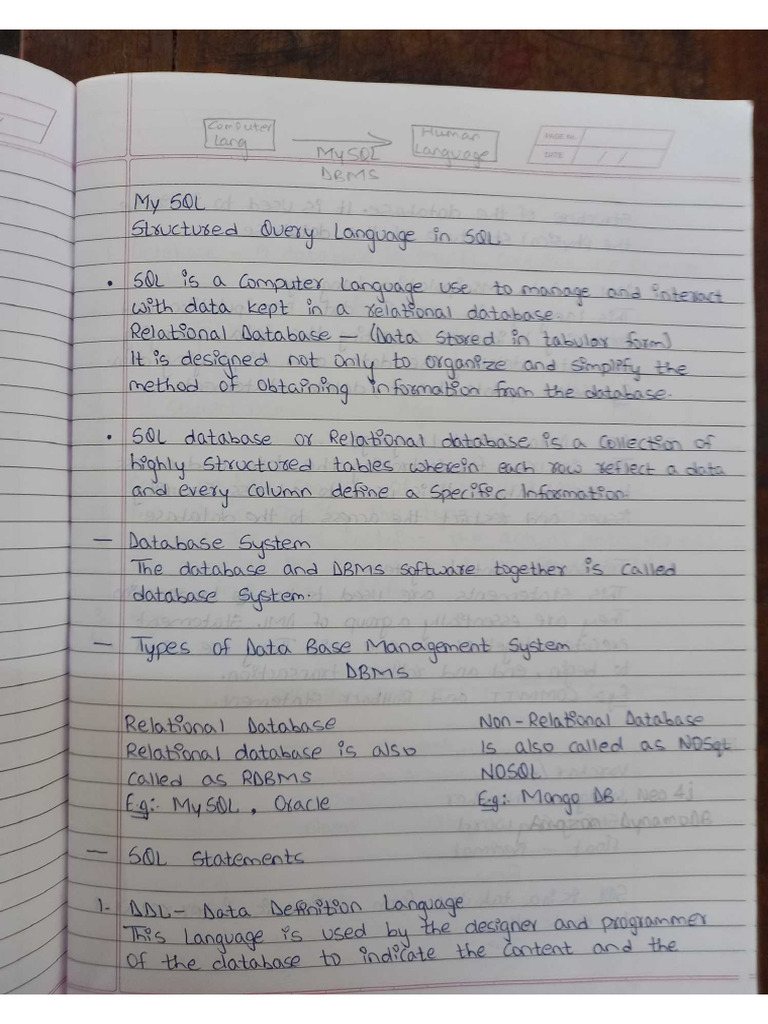 Computer Lang
MySQL
DBMS
Human Language
PAGE No.
DATE / /
My SQL
Structured Query Language in SQL
• SQL is a Computer Language use to manage and interact
with data kept in a relational database.
Relational Database – (Data Stored in tabular form)
It is designed not only to organize and simplify the
method of obtaining information from the database.
• SQL database or Relational database is a Collection of
highly Structured tables wherein each row reflect a data
and every Column define a Specific Information.
– Database System
The database and DBMS software together is called
database System.
– Types of Data Base Management System
DBMS
Relational Database
Relational database is also
called as RDBMS
E.g:- MySQL, Oracle
Non-Relational Database
Is also called as NOSql
NOSQL
E.g:- Mango DB, Neo 4j
Amazon DynamoDB
– SQL Statements
1- DDL – Data Definition Language
This Language is used by the designer and programmer
Of the database to indicate the Content and the